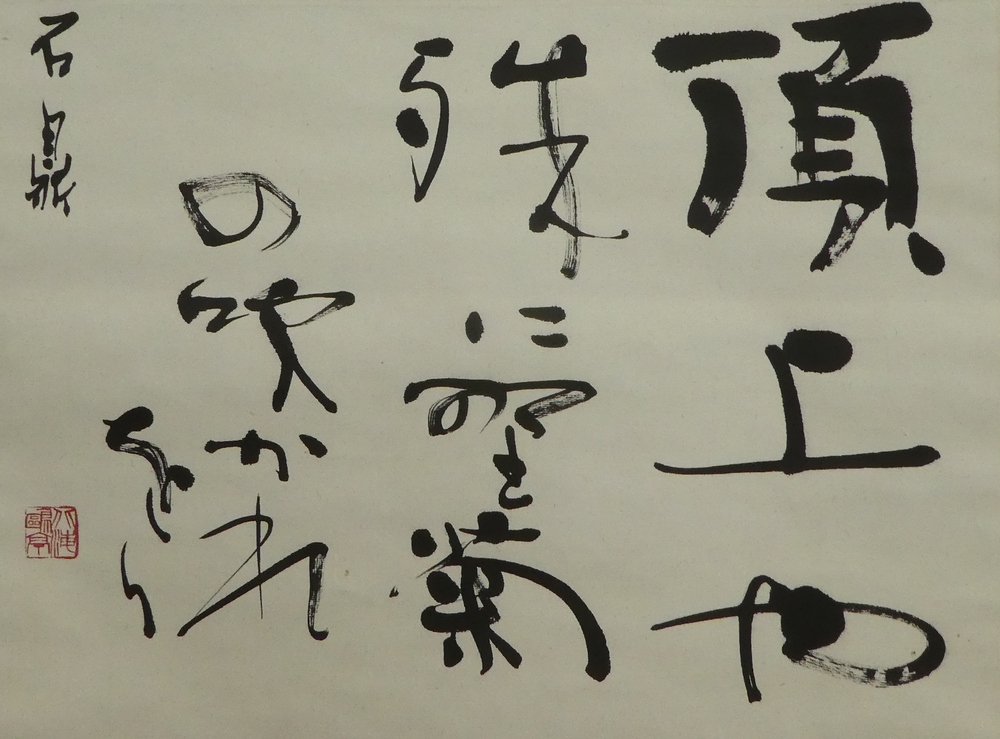 頂上や
殊に野菊
の吹かれ
居り
石鼎